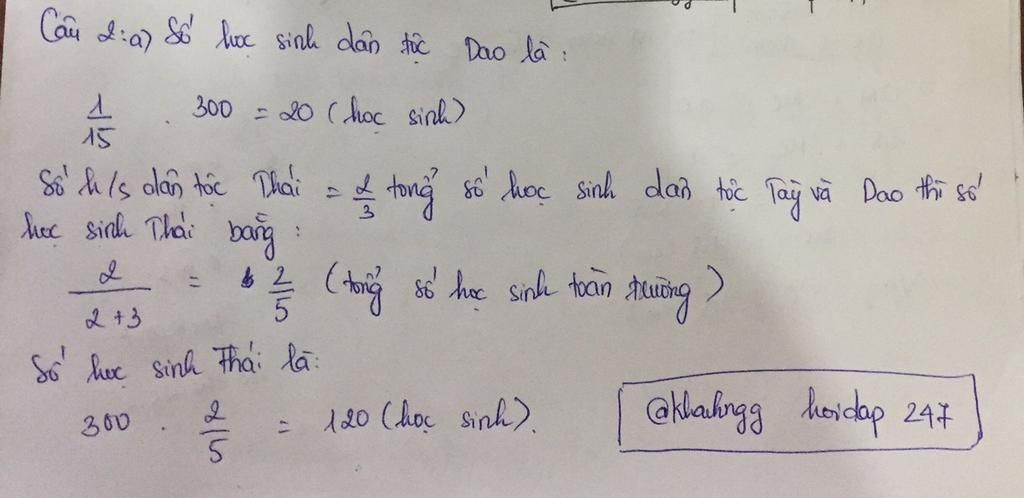 Câu 2: a) Số học sinh dân tộc Dao là :
1/15 . 300 = 20 (học sinh)
Số h/s dân tộc Thái = 2/3 tổng số học sinh dân tộc Tày và Dao thì số
học sinh Thái bằng :
2/(2+3) = 2/5 (tổng số học sinh toàn trường)
Số học sinh Thái là:
300 . 2/5 = 120 (học sinh).
@khahngg hoidap 247